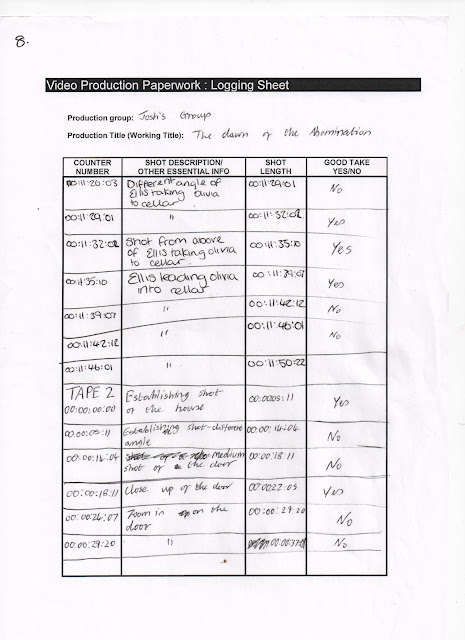 8.
Video Production Paperwork : Logging Sheet
Production group: Josh's Group
Production Title (Working Title): The dawn of the Abomination
COUNTER NUMBER SHOT DESCRIPTION/ OTHER ESSENTIAL INFO SHOT LENGTH GOOD TAKE YES/NO
00:11:26:03 Different angle of 00:11:29:01 No
Ellis taking olivia
to cellar
00:11:29:01 " 00:11:32:02 Yes
00:11:32:02 Shot from above 00:11:35:10 Yes
of Ellis taking olivia
to cellar.
00:11:35:10 Ellis leading olivia 00:11:39:07 Yes
into cellar
00:11:39:07 " 00:11:42:12 No
00:11:42:12 " 00:11:46:01 No
00:11:46:01 " 00:11:50:22
TAPE 2 Establishing shot 00:0005:11 Yes
00:00:00:00 of the house
00:00:05:11 Establishing shot-different 00:00:14:04 No
angle
00:00:14:04 medium 00:00:18:11 No
shot of the door
00:00:18:11 Close up of the door 00:0022:05 Yes
00:00:26:07 Zoom in on the 00:00:29:20 No
door
00:00:29:20 " No